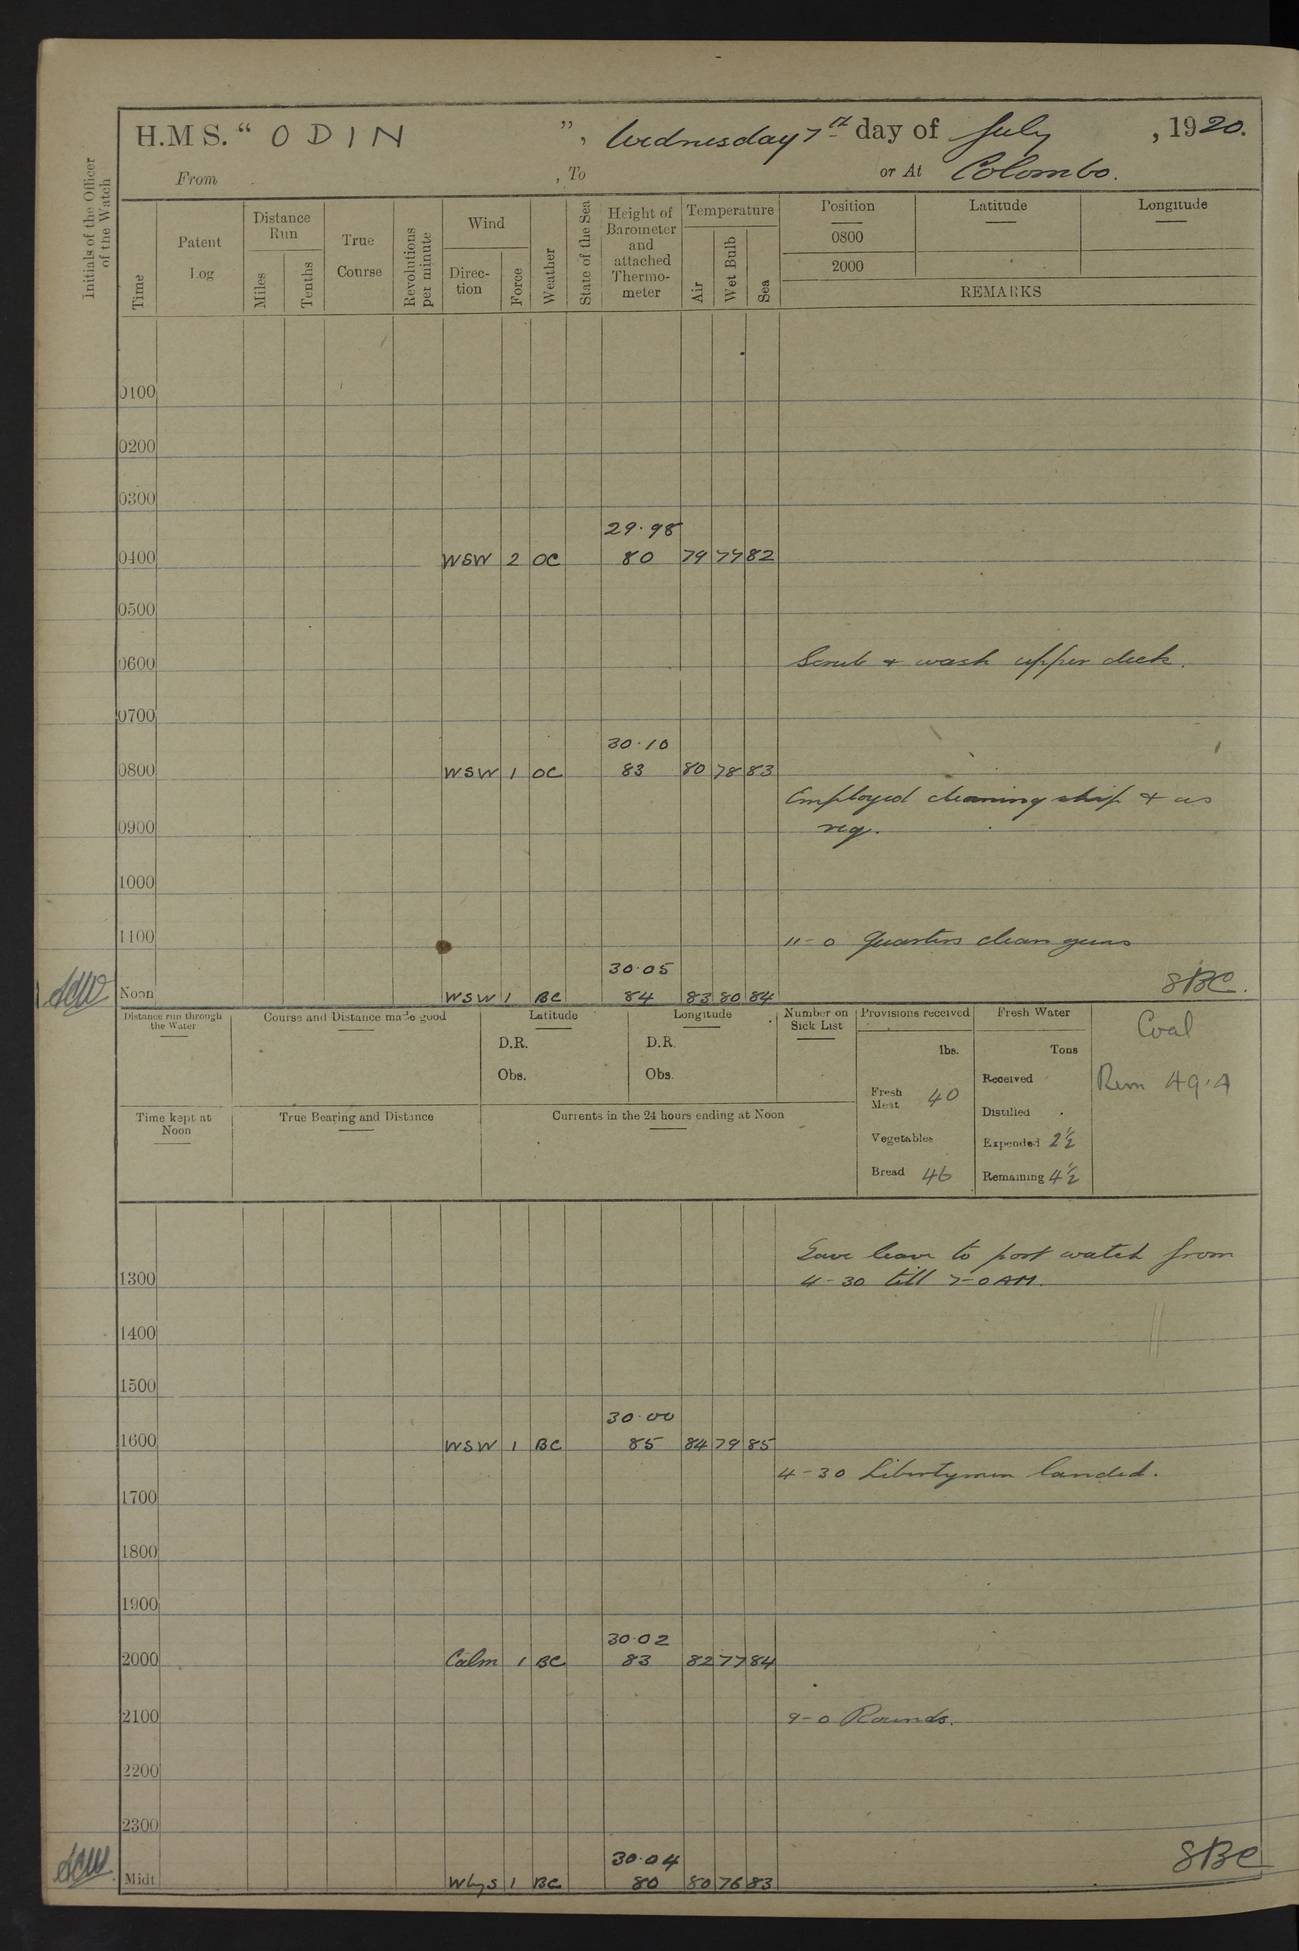 H.M S. “ ODIN ”, Wednesday 7th day of July , 1920.
From , To or At Colombo.
Initials of the Officer of the Watch
Time
Patent Log
Distance Run
Miles
Tenths
True Course
Revolutions per minute
Wind
Direc-tion
Force
Weather
State of the Sea
Height of Barometer and attached Thermo-meter
Temperature
Air
Wet Bulb
Sea
Position
0800
2000
Latitude
Longitude
REMARKS
0100
0200
0300
29.98
0400 WSW 2 OC 80 79 77 82
0500
0600 Scrub & wash upper deck.
0700
30.10
0800 WSW 1 OC 83 80 78 83
Employed cleaning ship & as
0900 req.
1000
1100 11-0 Quarters clean guns
30.05
Noon WSW 1 BC 84 83 80 84 SBC.
Distance run through the Water
Course and Distance made good
Latitude
D.R.
Obs.
Longitude
D.R.
Obs.
Number on Sick List
Provisions received
lbs.
Fresh Meat 40
Vegetables
Bread 46
Fresh Water
Tons
Received
Distilled
Expended 2½
Remaining 4½
Coal
Rem 49.A
Time kept at Noon
True Bearing and Distance
Currents in the 24 hours ending at Noon
Gave leave to port watch from
1300 4-30 till 7-0 AM.
1400
1500
30.00
1600 WSW 1 BC 85 84 79 85
4-30 Libertymen landed.
1700
1800
1900
30.02
2000 Calm 1 BC 83 82 77 84
2100 9-0 Rounds.
2200
2300
30.04
Midt WlyS 1 BC 80 80 76 83 SBC